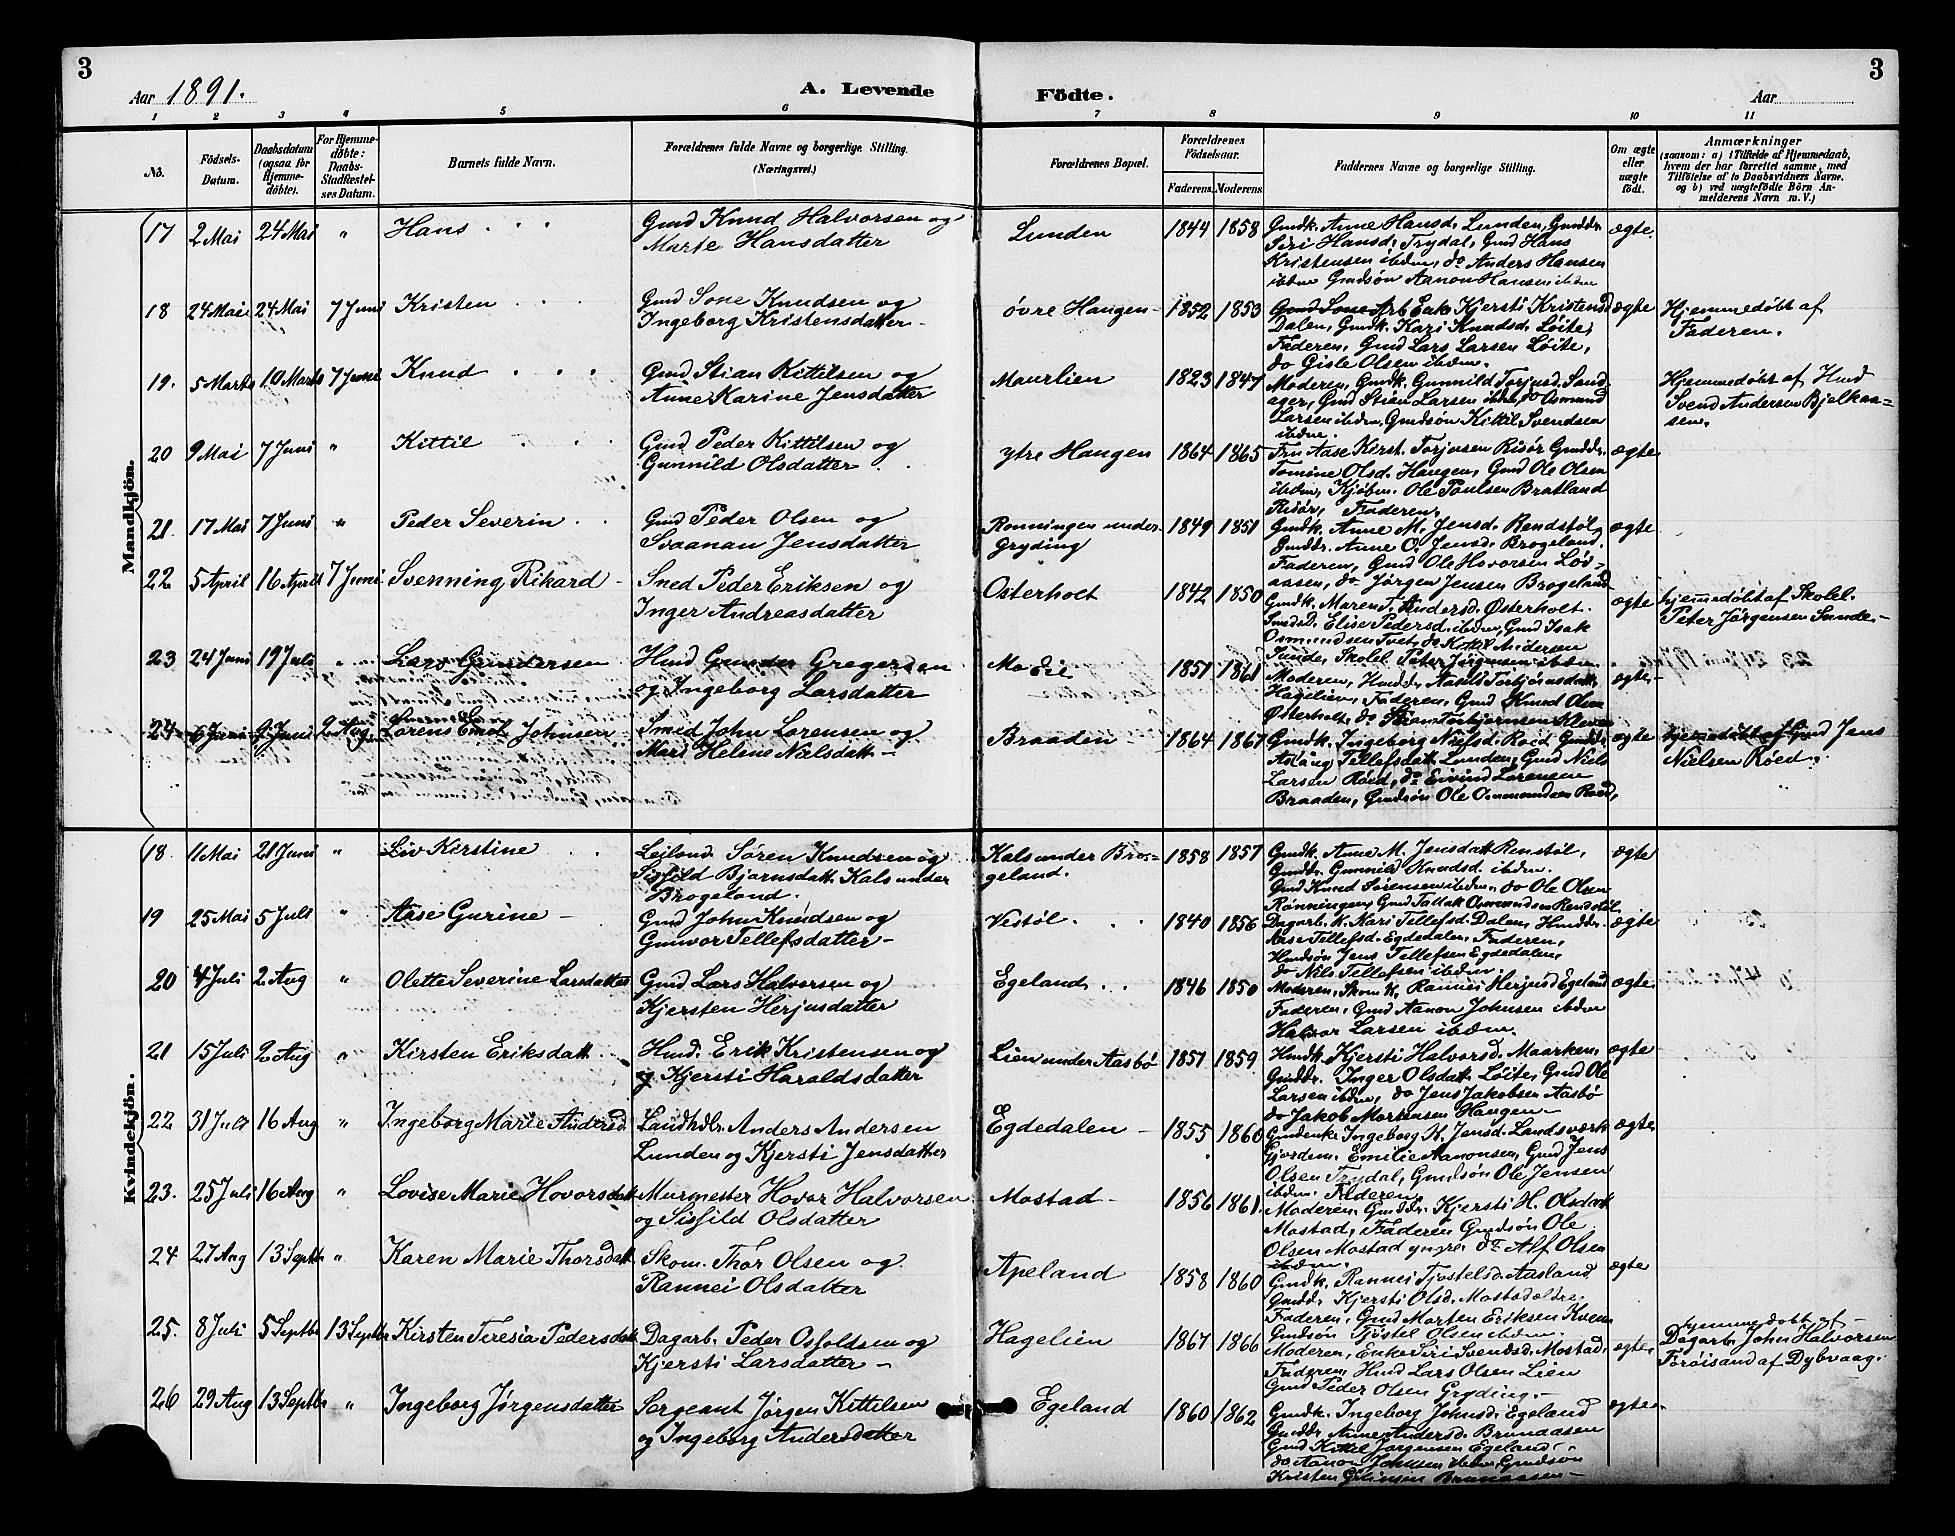 3
Aar 1891.
A. Levende Födte.
Aar
3
1 2 3 4 5 6 7 8 9 10 11
No.
Födsels-Datum.
Daabsdatum (ogsaa for Hjemme-döbte).
For Hjemme-döbte: Daabs-Stadfæstel-ses Datum.
Barnets fulde Navn.
Forældrenes fulde Navne og borgerlige Stilling. (Næringsvei.)
Forældrenes Bopæl.
Forældrenes Födselsaar.
Faderens. Moderens.
Faddernes Navne og borgerlige Stilling.
Om ægte eller uægte födt.
Anmærkninger
(saasom: a) i Tilfælde af Hjemmedaab, hvem der har forrettet samme, med Tilföielse af to Daabsvidners Navne, og b) ved uægtefödte Börn Anmelderens Navn m. V.)
Mandkjön.
17 2 Mai 24 Mai " Hans Gmd Knud Halvorsen og Marie Hansdatter Lunden 1844 1858 Gmdk. Anne Hansd. Lunden, Gmddr. Siri Hansd. Trydal, Gmd Hans Kristensen ibdm, do Anders Hansen ibdm Gmdsøn Aanon Hansen ibdm ægte.
18 24 Mai 24 Mai 7 Juni Kristen Gmd Sone Knudsen og Ingeborg Kristensdatter- øvre Haugen- 1852 1853 Kjersti Kristensd Dalen, Gmdk. Kari Knudsd. Løite, Faderen, Gmd Lars Larsen Løite, do Gisle Olsen ibdm. ægte Hjemmedøbt af Faderen.
19. 5 Marts 10 Marts 7 Juni Knud Gmd Stian Kittilsen og Anne Karine Jensdatter Maurlien 1823 1847 Moderen, Gmdk. Gunnild Torjusd. Sandager, Gmd Stian Larsen ibdm, do Osmund Larsen ibdm, Gmdsøn Kittil Svendsen ibdm. ægte Hjemmedøbt af Hmd Svend Andersen Bjelkaasen.
20 9 Mai 7 Juni " Kittil Gmd Peder Kittilsen og Gunnild Olsdatter ytre Haugen 1864 1865 Fru Aase Kirst. Torjusen Risør Gmddr. Tomine Olsd. Haugen, Gmd Ole Olsen ibdm, Kjøbm. Ole Poulsen Bratland Risør, Faderen, ægte
21. 17 Mai 7 Juni " Peder Severin Gmd Peder Olsen og Svaanau Jensdatter Ronningen under Gryding 1849 1851 Gmdk. Anne M. Jensd. Rendstøl, Gmddr. Anne O. Jensd. Brogeland. Faderen, Gmd Ole Hovorsen Løvaasen, do Jørgen Jensen Brogeland ægte
22. 5 April 16 April 7 Juni Svenning Rikard - Smed Peder Eriksen og Inger Andreasdatter Osterholt 1842 1850 Gmdk. Maren T. Andersd. Østerholt. Smedsd. Elise Pedersd. ibdm, Gmd Isak Osmundsen Tvet, do Kittil Andersen Sunde, Skolel. Peter Jørgensen ibdm. ægte hjemmedøbt af Skolel. Peter Jørgensen Sunde-
23 24 Juni 19 Juli " Lars Gundersen Hmd Gunder Gregersen og Ingeborg Larsdatter Mo Eie 1851 1861 Moderen, Hmddr. Aaselb Torbjørnsdatt. Hagelien, Faderen, Gmd Knud Olsen Østerholt, do Torbjørnsen Kleven ægte-
24 6 Juni 9 Juni 2 Aug Lorens Emil Johnsen Smed John Lorensen og Mari Helene Nilsdatt - Braaden - 1864 1867 Gmdk. Ingeborg Nielsd. Roed Gmddr. Aslaug Tellefsdatt Lunden, Gmd Niels Larsen Røed, do Eivind Lorensen Braaden, Gmdsøn Ole Osmundsen Roed, ægte hjemmedøbt af Gmd Jens Nielsen Røed.
Kvindekjön.
18. 11 Mai 21 Juni " Liv Kirstine Leilend. Søren Knudsen og Sigfild Bjarnsdatt. Kals under Brogeland. Kals under Brogeland. 1858 1857 Gmdk. Anne M. Jensdatt Renstøl, Gmddr. Gunnild Knudsd. ibdm. Gmd Knud Sørensen ibdm, do Ole Olsen Rønningen, Gmd Tallak Osmundsen Rendstøl. ægte
19 25 Mai 5 Juli " Aase Gurine - Gmd John Knudsen og Gunvor Tellefsdatter- Vestøl. 1840 1856 Dagarb. K. Kari Tellefsd. Dalen, Hmddr. Aase Tellefsd. Egdedalen, Faderen, Hmdsøn Jens Tellefsen Egdedalen, do Nils Tellefsen ibdm. ægte
20 4 Juli 2 Aug " Olette Severine Larsdatter Gmd Lars Halvorsen og Kjersten Herjusdatter Egeland 1846 1850 Moderen, Skom K. Rannei Herjusd Egeland Faderen, Gmd Aanon Johnsen ibdm Halvor Larsen ibdm. ægte.
21 15 Juli 2 Aug " Kirsten Eriksdatt. Hmd. Erik Kristensen og og Kjersti Haraldsdatter Lien under Aasbø 1857 1859 Hmdk. Kjersti Halvorsd. Maarken, Gmddr. Inger Olsdatt. Løite, Gmd Ole Larsen ibdm, do Jens Jakobsen Aasbø do Jakob Mortensen Haugen- ægte
22 31 Juli 16 Aug " Ingeborg Marie Andersd. Landhdlr. Anders Andersen Lunden og Kjersti Jensdatter Egdedalen - 1855 1860 Gmdenke Ingeborg H. Jensd. Landsværk Gjordem. Emilie Aanonsen, Gmd Jens Olsen Trydal, Gmdsøn Ole Jensen ibdm. Faderen. ægte
23. 25 Juli 16 Aug " Lovise Marie Hovorsdatt Murmester Hovor Halvorsen og Sigfild Olsdatter Mostad - 1856 1861. Moderen. Gmddr. Kjersti H. Olsdatt Mostad, Faderen Gmdsøn Ole Olsen Mostad yngre do Alf Olsen ibdm. ægte
24 27 Aug 13 Septbr " Karen Marie Thorsdatt. Skom. Thor Olsen og Rannei Olsdatter Apeland 1858 1860 Gmdk. Rannei Tjøstelsd. Aasland Gmddr. Kjersti Olsd. Mostad ældre Faderen, Gmd Morten Eriksen Kveim Gmdsøn Tjøstel Olsen ibdm. ægte
25. 8 Juli 5 Septbr 13 Septbr Kirsten Teresia Pedersdatt Dagarb. Peder Osfoldsen og Kjersti Larsdatter - Hagelien 1867 1866 Moderen, Enke Siri Svendsd. Mostad, Faderen, Hmd Lars Olsen Lien Gmd Peder Olsen Gryding. ægte. hjemmedøbt af Dagarb. John Halvorsen Førøisand af Dybvaag.
26 29 Aug 13 Septbr " Ingeborg Jørgensdatter Sergeant Jørgen Kittelsen og Ingeborg Andersdatter Egeland 1860 1862 Gmdk. Ingeborg Johnsd. Egeland Gmddr. Anne Andersd. Brunaasen Gmd Kittil Jørgensen Egeland, do Aanon Johnsen ibdm, Gmdsøn Kristen Brunaasen- ægte